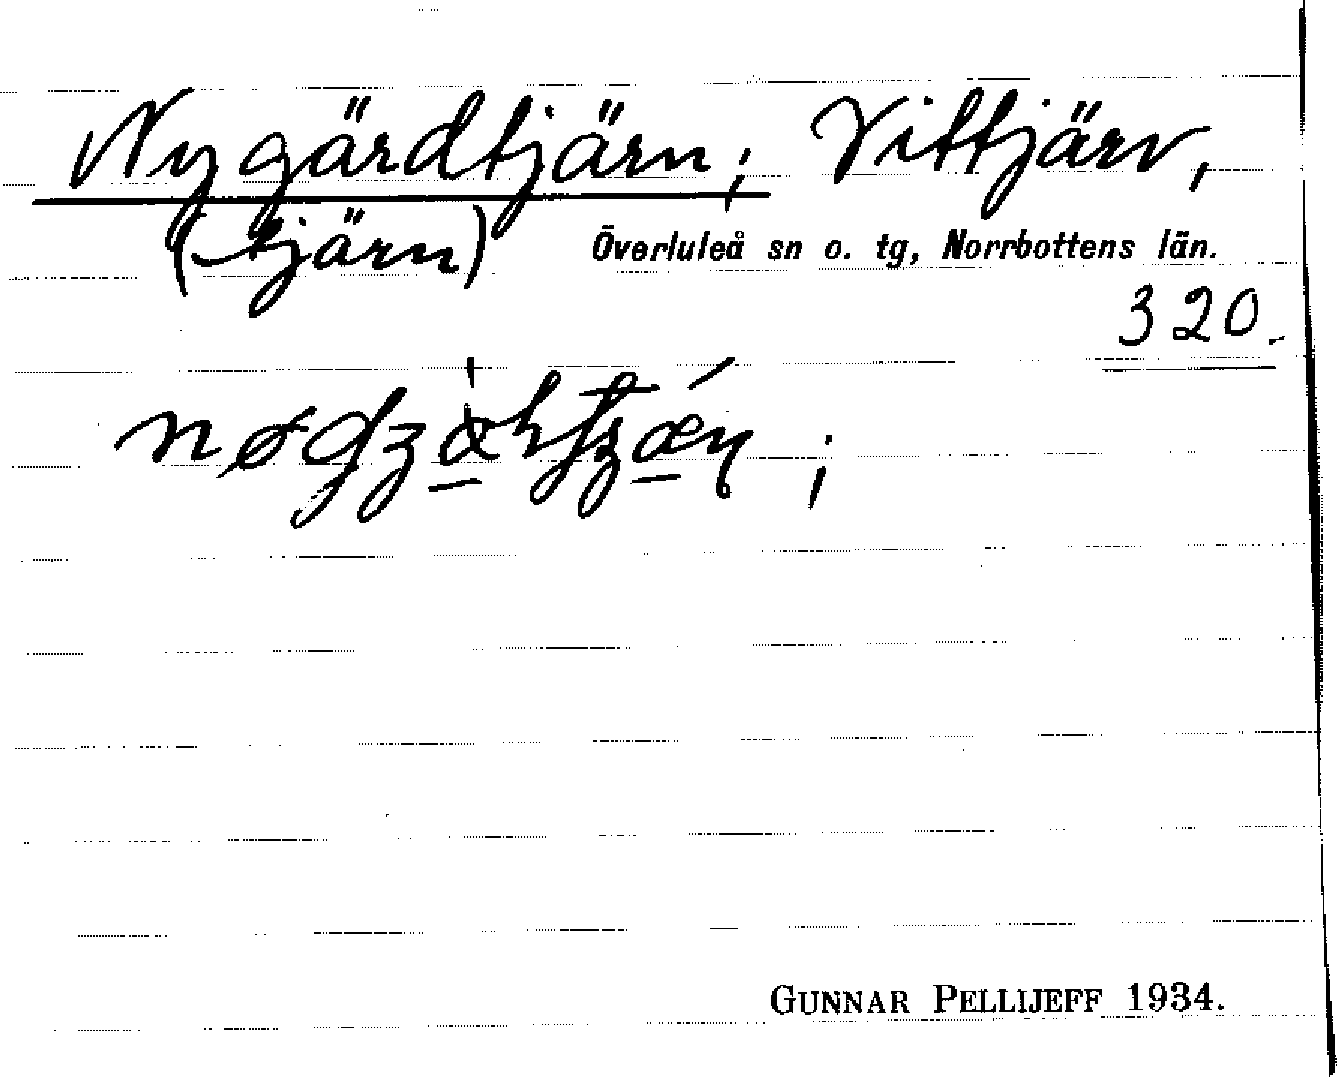 Nygärdtjärn; Vittjärv,
(tjärn) Överluleå sn o. tg, Norrbottens län.
320.
GUNNAR PELLIJEFF 1934.